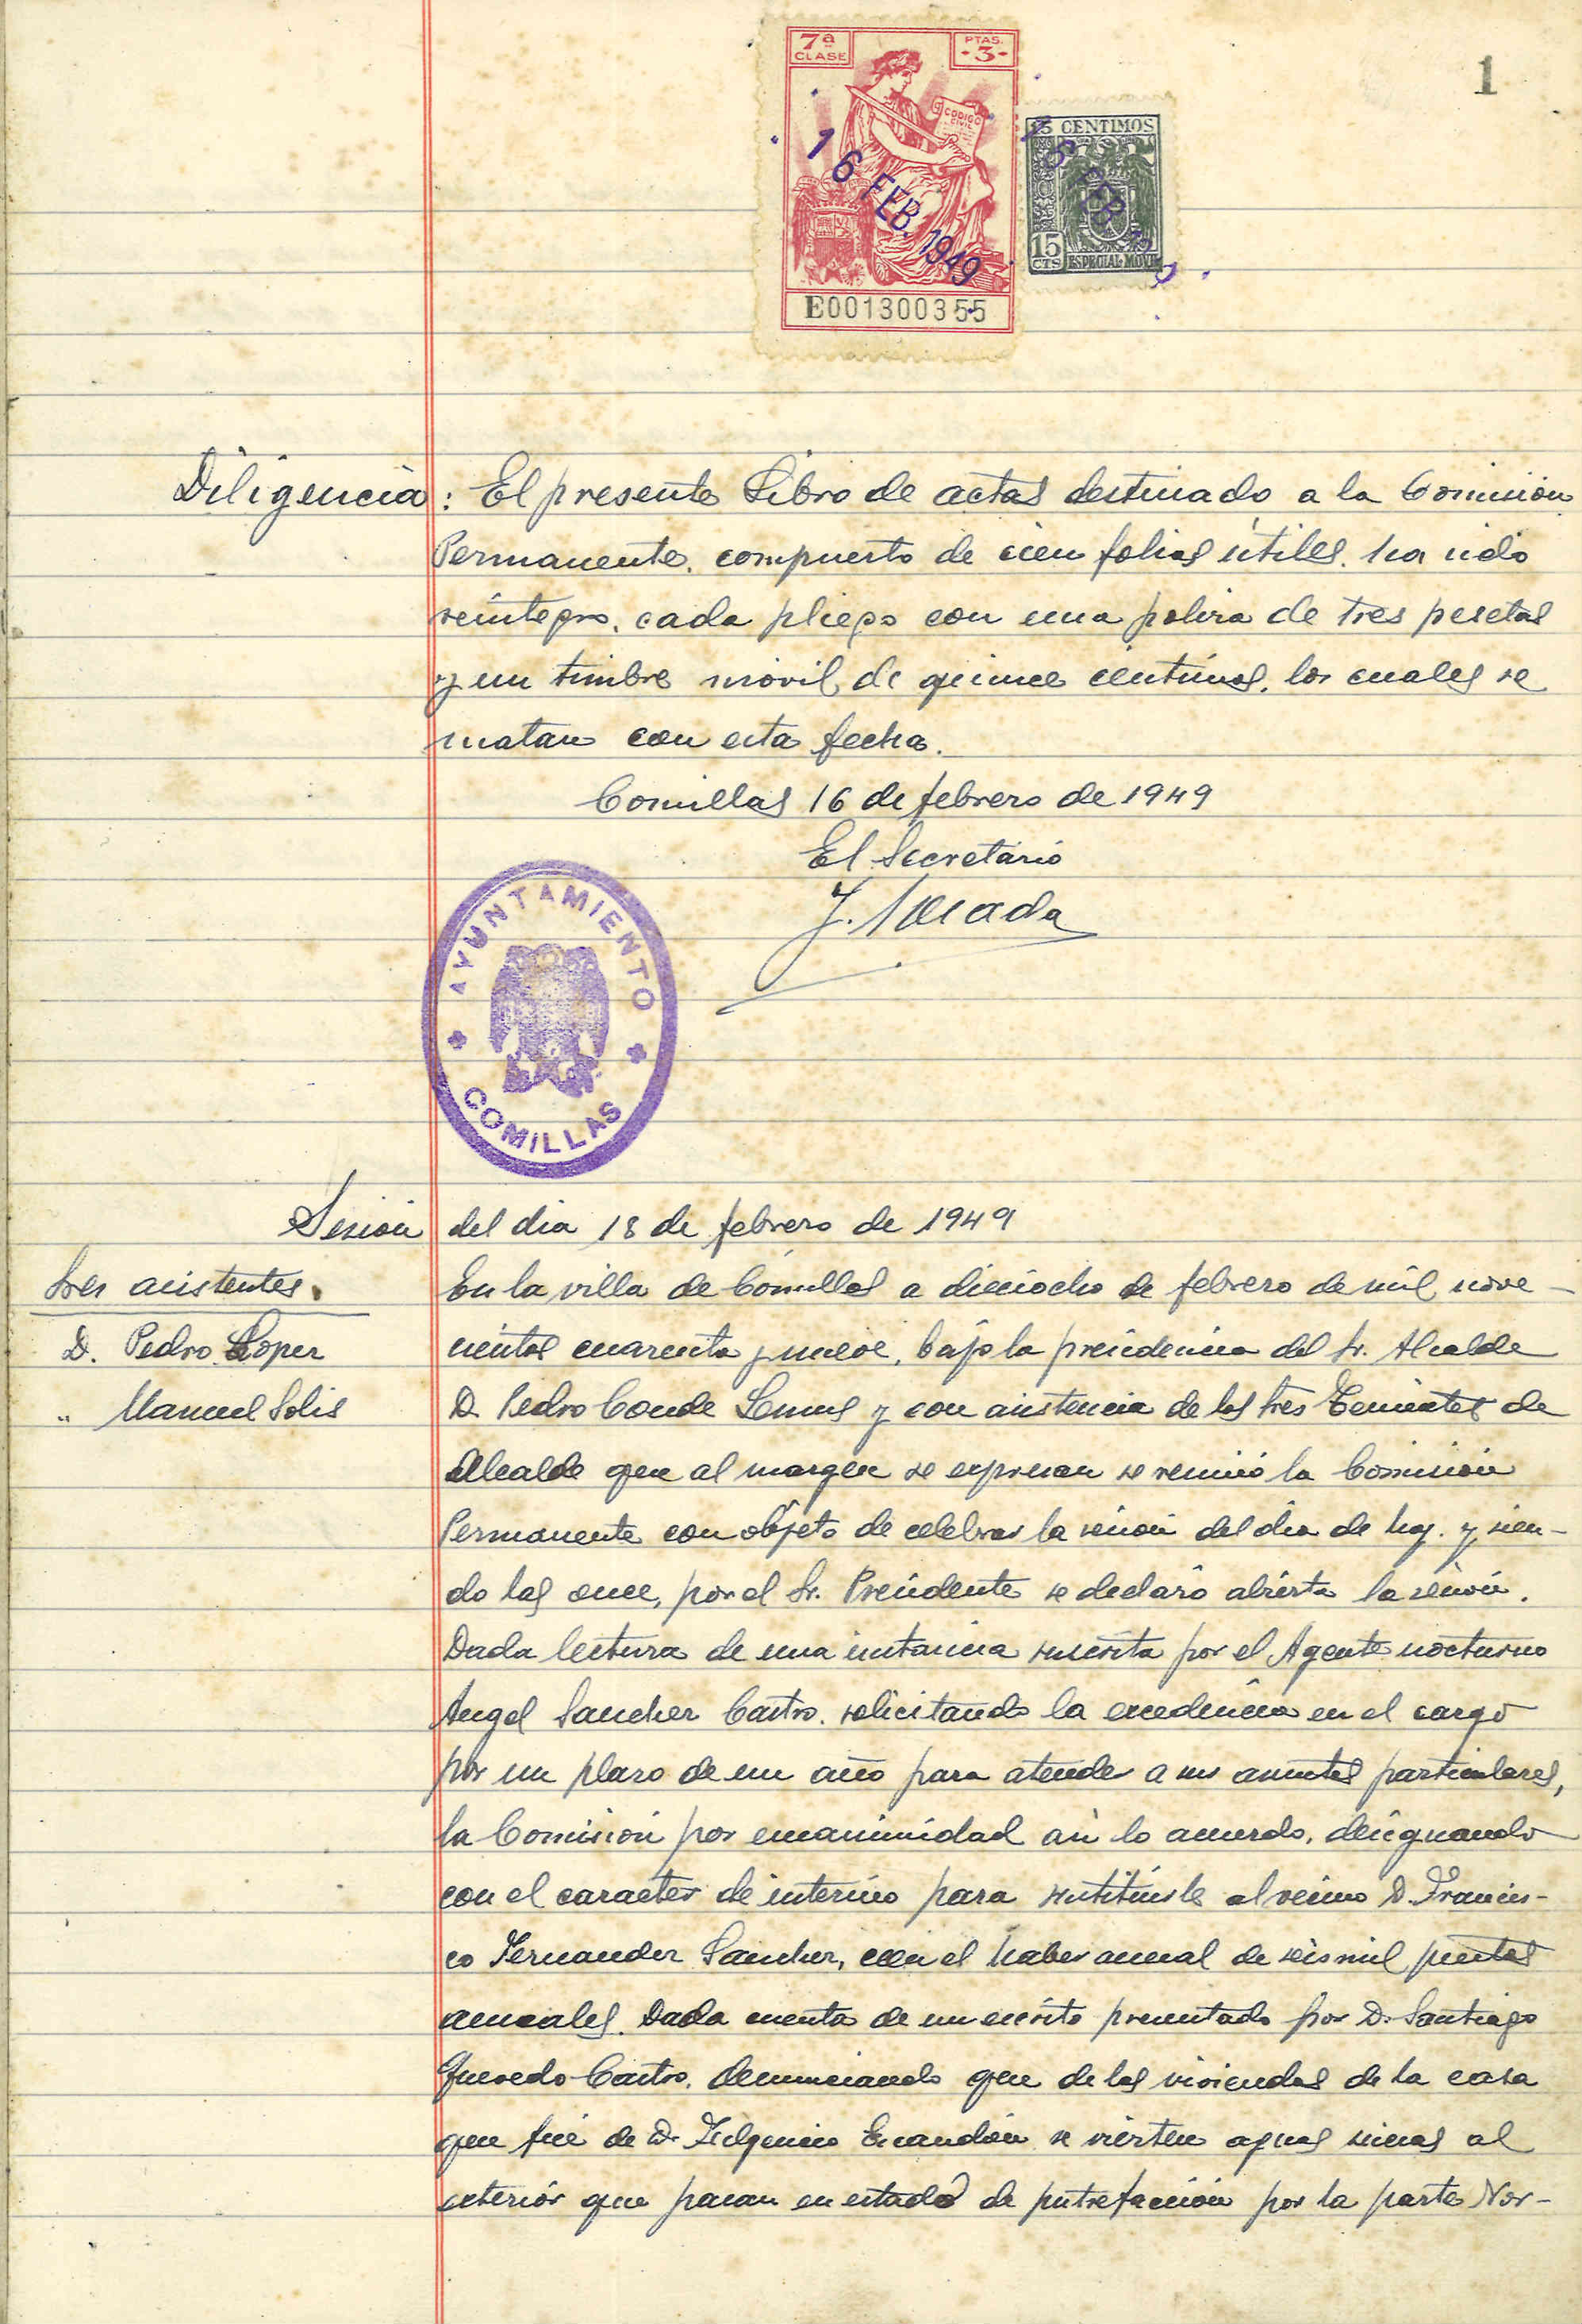 1
7ª CLASE
PTAS. -3-
CODIGO CIVIL
16 FEB. 1949
E001300355
15 CENTIMOS
16 FEB.
15 CTS ESPECIAL MOVIL
Diligencia: El presente Libro de actas destinado a la Comisión
Permanente, compuesto de cien folios útiles, ha sido
reintegro, cada pliego con una poliza de tres pesetas
y un timbre móvil de quince céntimos, los cuales se
matan con esta fecha.
Comillas 16 de febrero de 1949
El Secretario
AYUNTAMIENTO
COMILLAS
Sesión del dia 18 de febrero de 1949
Sres asistentes.
D. Pedro Lopez
" Manuel Solis
En la villa de Comillas a dieciocho de febrero de mil nove-
cientos cuarenta y nueve, bajo la presidencia del Sr. Alcalde
D. Pedro Conde Lemus y con asistencia de los tres Tenientes de
Alcalde que al margen se expresan se reunió la Comisión
Permanente con objeto de celebrar la sesión del dia de hoy. y sien-
do las once, por el Sr. Presidente se declaró abierta la sesión.
Dada lectura de una instancia suscrita por el Agente nocturno
Angel Sanchez Castro, solicitando la excedencia en el cargo
por un plazo de un año para atender a sus asuntos particulares,
la Comisión por unanimidad así lo acuerda, designando
con el caracter de interino para sustituirle al vecino D. Francis-
co Fernandez Sanchez, con el haber anual de seis mil pesetas
anuales. Dada cuenta de un escrito presentado por D. Santiago
Quevedo Castro, denunciando que de las viviendas de la casa
que fué de D. Fulgencio Escandón se vierten aguas sucias al
exterior que pasan en estado de putrefacción por la parte Nor-